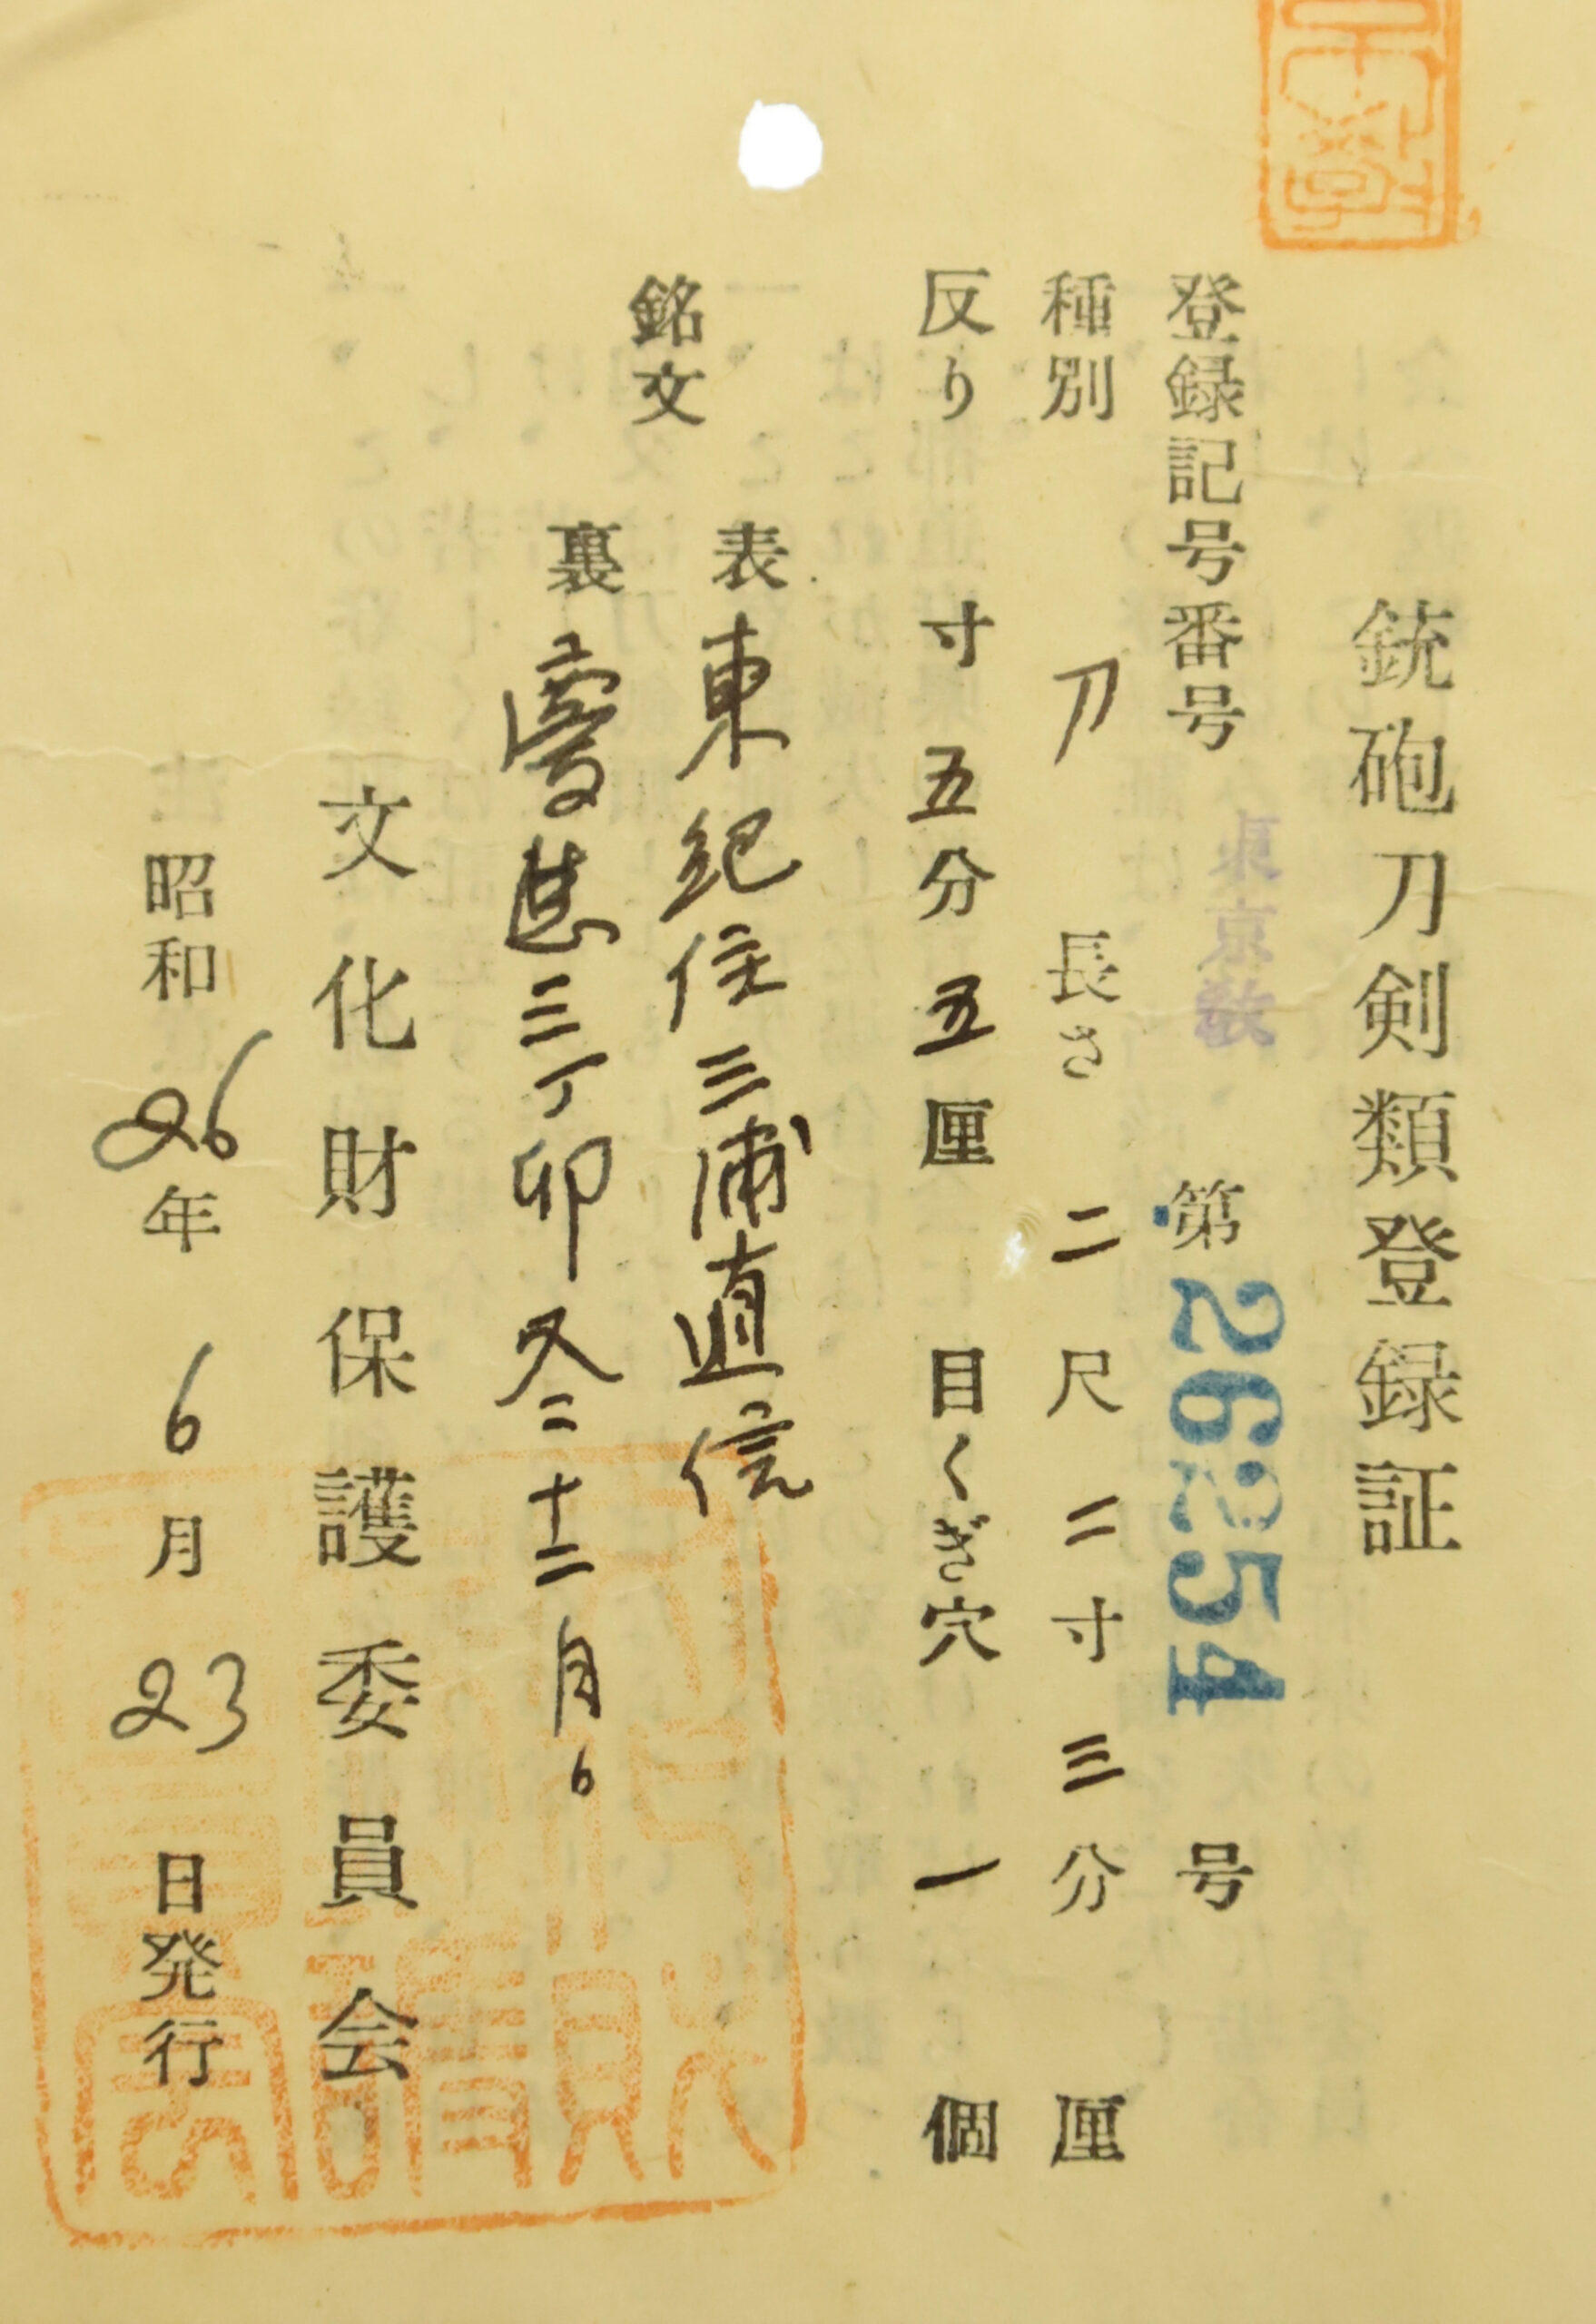 銃砲刀剣類登録証
登録記号番号 東京 第26254号
種別 刀 長さ 二尺二寸三分 厘
反り 寸五分五厘 目くぎ穴 一個
銘文
表 東紀住三浦直信
裏 慶甚三丁卯冬二十二月6
文化財保護委員会
昭和26年6月23日発行